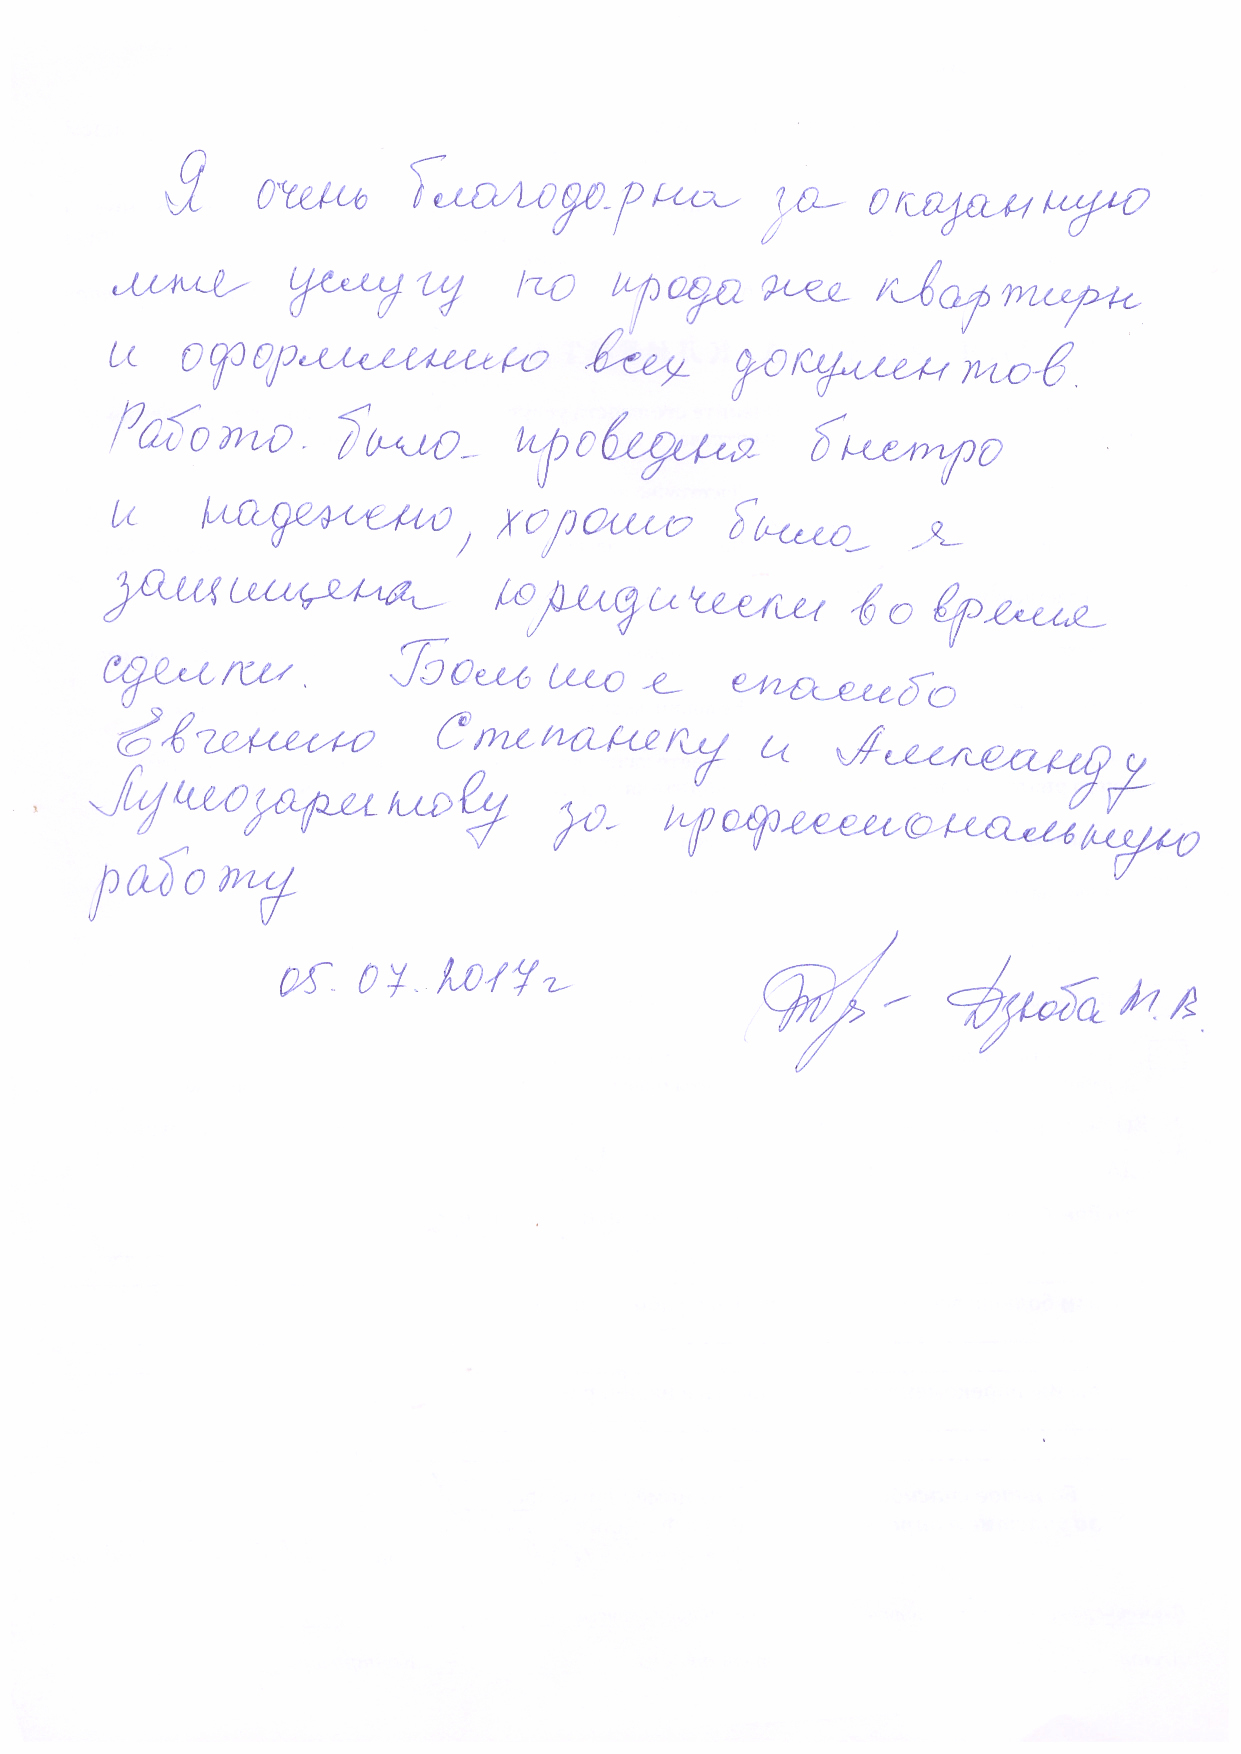 Я очень благодарна за оказанную
мне услугу по продаже квартиры
и оформлению всех документов.
Работа была проведена быстро
и надежно, хорошо была я
защищена юридически во время
сделки. Большое спасибо
Евгению Степанеку и Александу
за профессиональную
работу
05.07.2017г
Дзюба М.В.